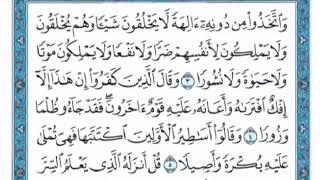 وَاتَّخَذُوا مِن دُونِهِ ءَالِهَةً لَّا يَخْلُقُونَ شَيْئًا وَهُمْ يُخْلَقُونَ
وَلَا يَمْلِكُونَ لِأَنفُسِهِمْ ضَرًّا وَلَا نَفْعًا وَلَا يَمْلِكُونَ مَوْتًا
وَلَا حَيَوٰةً وَلَا نُشُورًا ٣ وَقَالَ الَّذِينَ كَفَرُوا إِنْ هَٰذَا إِلَّا
إِفْكٌ افْتَرَىٰهُ وَأَعَانَهُ عَلَيْهِ قَوْمٌ ءَاخَرُونَ فَقَدْ جَاءُو ظُلْمًا
وَزُورًا ٤ وَقَالُوا أَسَٰطِيرُ الْأَوَّلِينَ اكْتَتَبَهَا فَهِيَ تُمْلَىٰ
عَلَيْهِ بُكْرَةً وَأَصِيلًا ٥ قُلْ أَنزَلَهُ الَّذِي يَعْلَمُ السِّرَّ